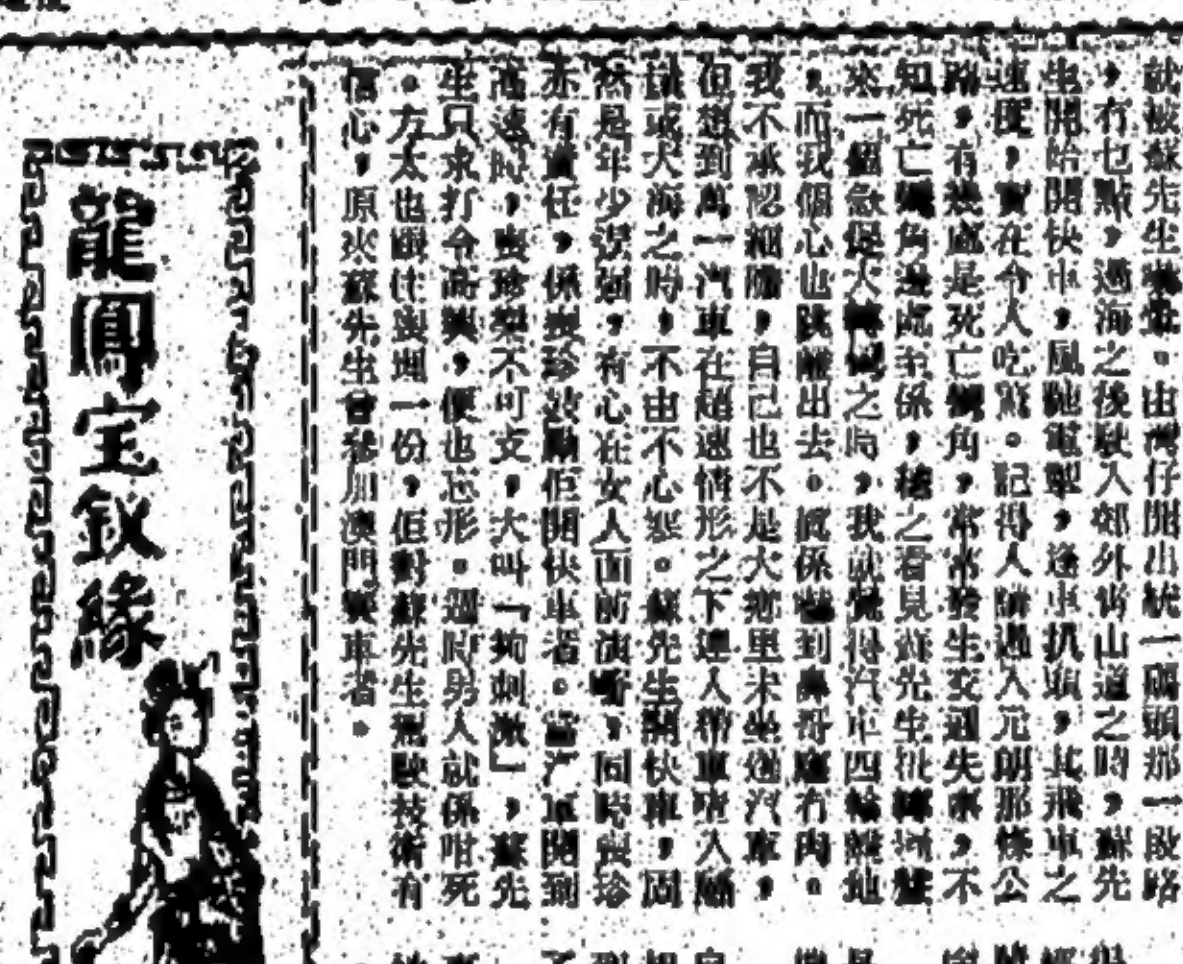 就被蘇先生嚇。由灣仔開出統一碼頭那一段路
，冇乜點，過海之後駛入郊外靑山道之時，蘇先
生開始開快車，風馳電掣，逢車扒頭，其飛車之
速度，實在令人吃驚。記得人講過入元朗那條公
路，有幾處是死亡彎角，常常發生交通失事，不
知死亡彎角邊處至係，總之看見蘇先生扭
來一個急促大轉彎之時，我就覺得汽車四輪離地
，而我個心也跳離出去。眞係嚇到鼻哥窿冇肉。
我不承認細膽，自己也不是大鄕里未坐過汽車，
但想到萬一汽車在超速情形之下連人帶車冲入
或大海之時，不由不心寒。蘇先生開快車，固
然是年少逞強，有心在女人面前演嘢，同時 珍
亦有責任，係 珍鼓勵佢開快車者。當汽車開到
高速時， 珍 樂不可支，大叫「夠刺激」，蘇先
生只求打令高興，便也忘形。這時男人就係咁死
。方太也 埋一份，佢對蘇先生駕駛技術有
信心，原來蘇先生曾參加澳門賽車者。
龍鳳宝釵緣